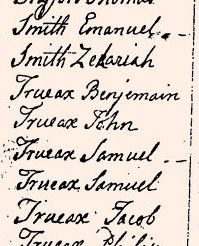 Smith Emanuel
Smith Zekariah
Trueax Benjemain
Trueax John
Trueax Samuel
Trueax Samuel
Trueax Jacob
Trueax Philip